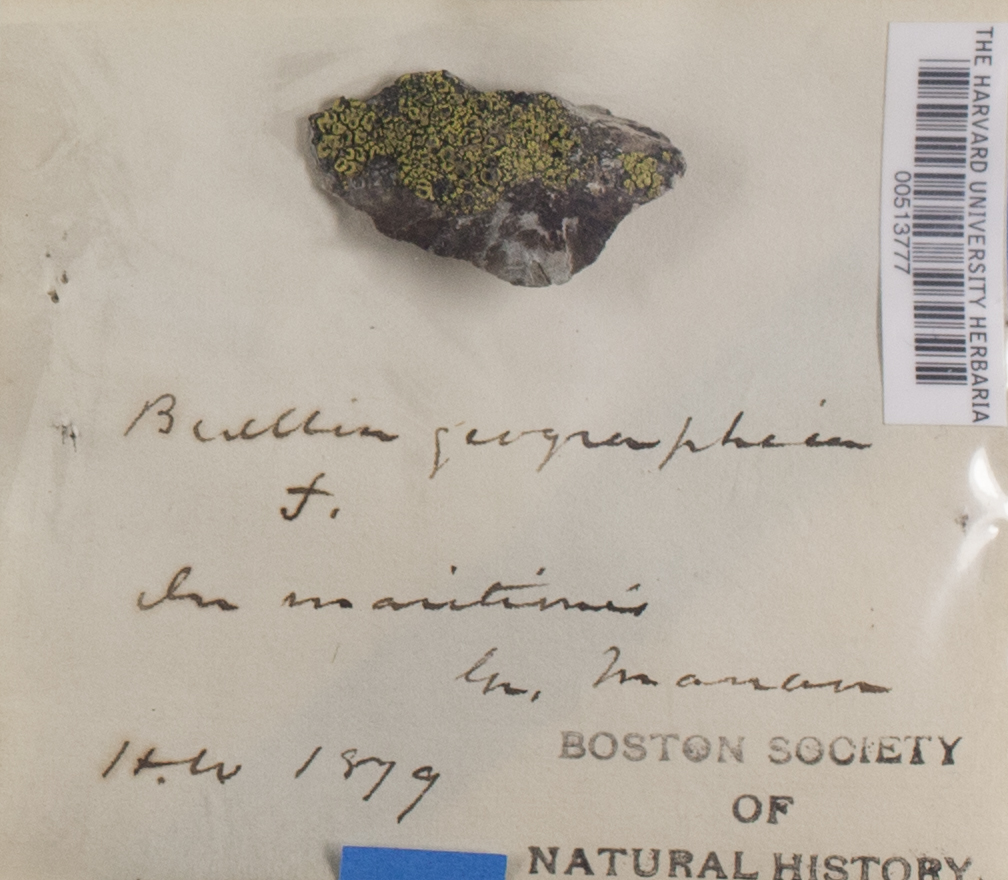 THE HARVARD UNIVERSITY HERBARIA
00513777
Buellia geographica
f.
In maritimis
Gr. Manan
H.W 1879
BOSTON SOCIETY
OF
NATURAL HISTORY.